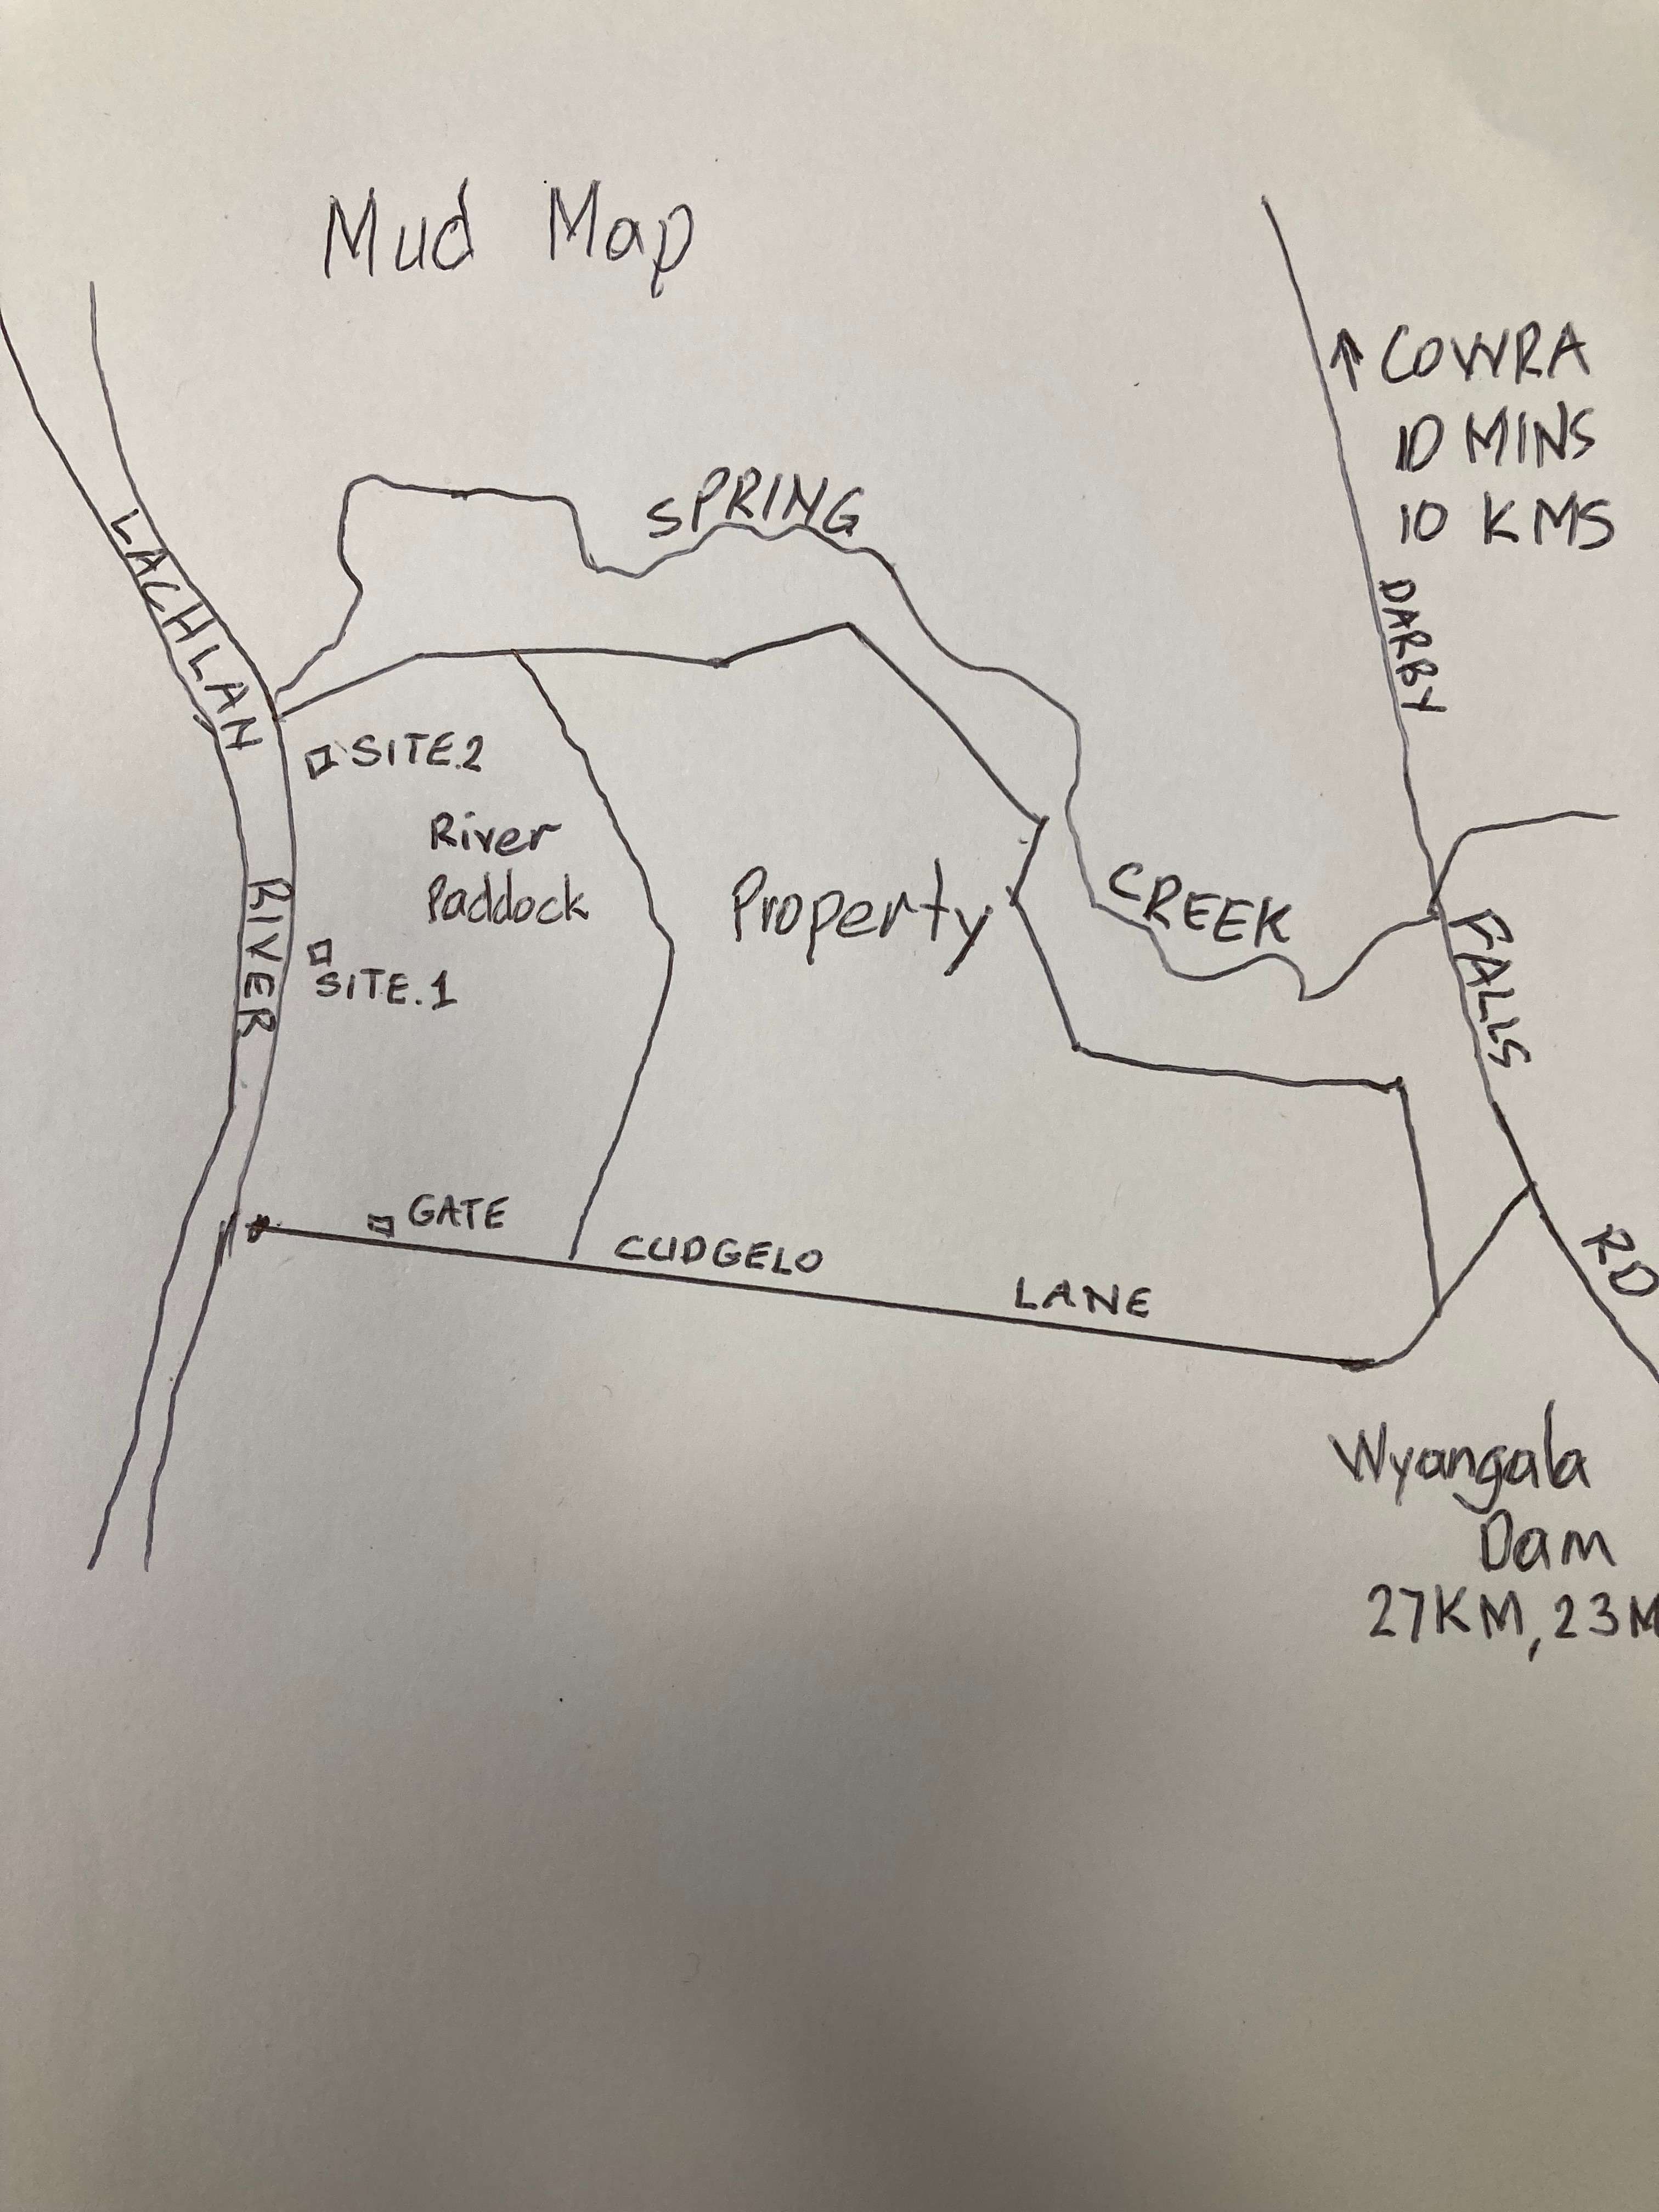 Mud Map
↑ COWRA
10 MINS
10 KMS
SPRING
CREEK
LACHLAN
RIVER
DARBY
FALLS
RD
SITE.2
River
Paddock
Property
SITE.1
GATE
CUDGELO
LANE
Wyangala
Dam
27KM, 23M